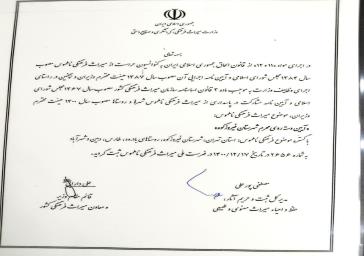 جمهوری اسلامی ایران
وزارت میراث فرهنگی، گردشگری و صنایع دستی
بسمه تعالی
در اجرای مواد ۱۱ و ۱۲ از قانون الحاق جمهوری اسلامی ایران به کنوانسیون حراست از میراث فرهنگی ناملموس مصوب
سال ۱۳۸۴ مجلس شورای اسلامی و آیین نامه اجرایی آن مصوب سال ۱۳۸۷ هیئت محترم وزیران و همچنین در راستای
اجرای وظایف وزارت به موجب ماده ۲ قانون اساسنامه سازمان میراث فرهنگی کشور مصوب سال ۱۳۶۷ مجلس شورای
اسلامی و آیین نامه مشارکت در پاسداری از میراث فرهنگی ناملموس شهرها و روستاها مصوب سال ۱۴۰۰ هیئت محترم
وزیران، موضوع میراث فرهنگی ناملموس:
محرم شهرستان فیروزکوه
با گستره موضوع فرهنگی ناملموس: استان تهران، شهرستان فیروزکوه، روستاهای
به شماره ۲۶۵۶ در تاریخ ۱۴۰۰/۱۲/۱۷ در فهرست ملی میراث فرهنگی ناملموس ثبت گردید.
مصطفی پورعلی
مدیرکل ثبت و حریم آثار
و حفظ و احیاء میراث معنوی و طبیعی
علی دارابی
قائم مقام وزیر
و معاون میراث فرهنگی کشور